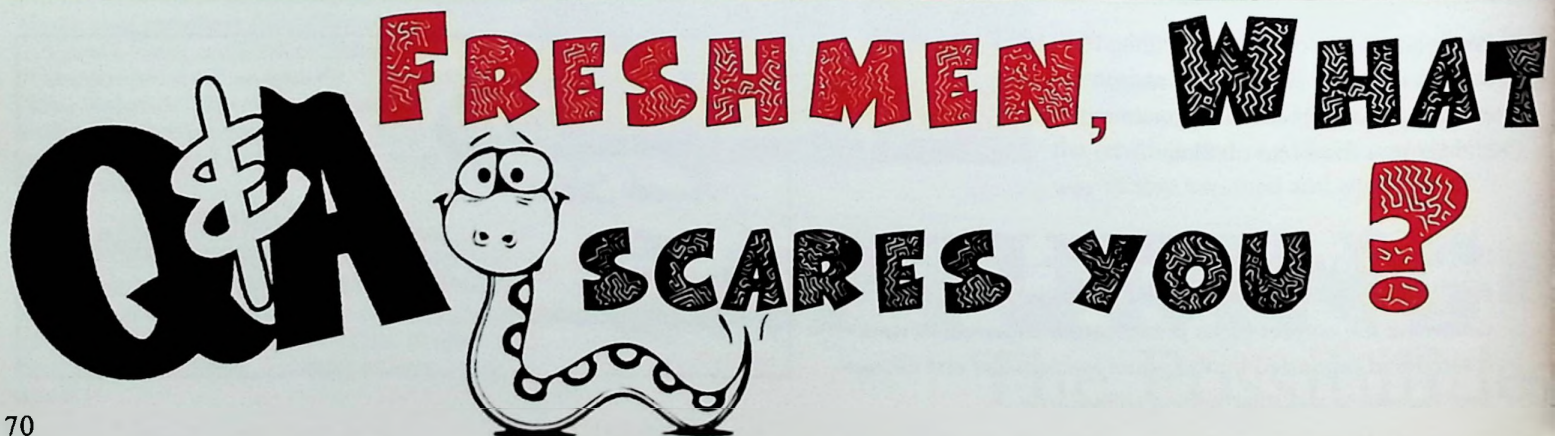 Q&A
FRESHMEN, WHAT
SCARES YOU?
70